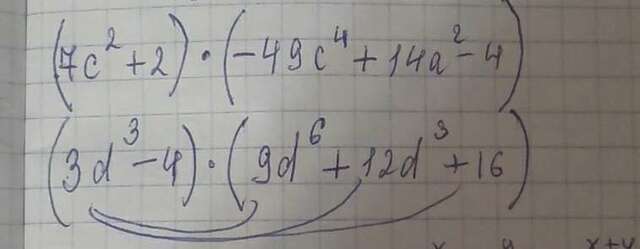 (7c² + 2) · (-49c⁴ + 14a² - 4)
(3d³ - 4) · (9d⁶ + 12d³ + 16)